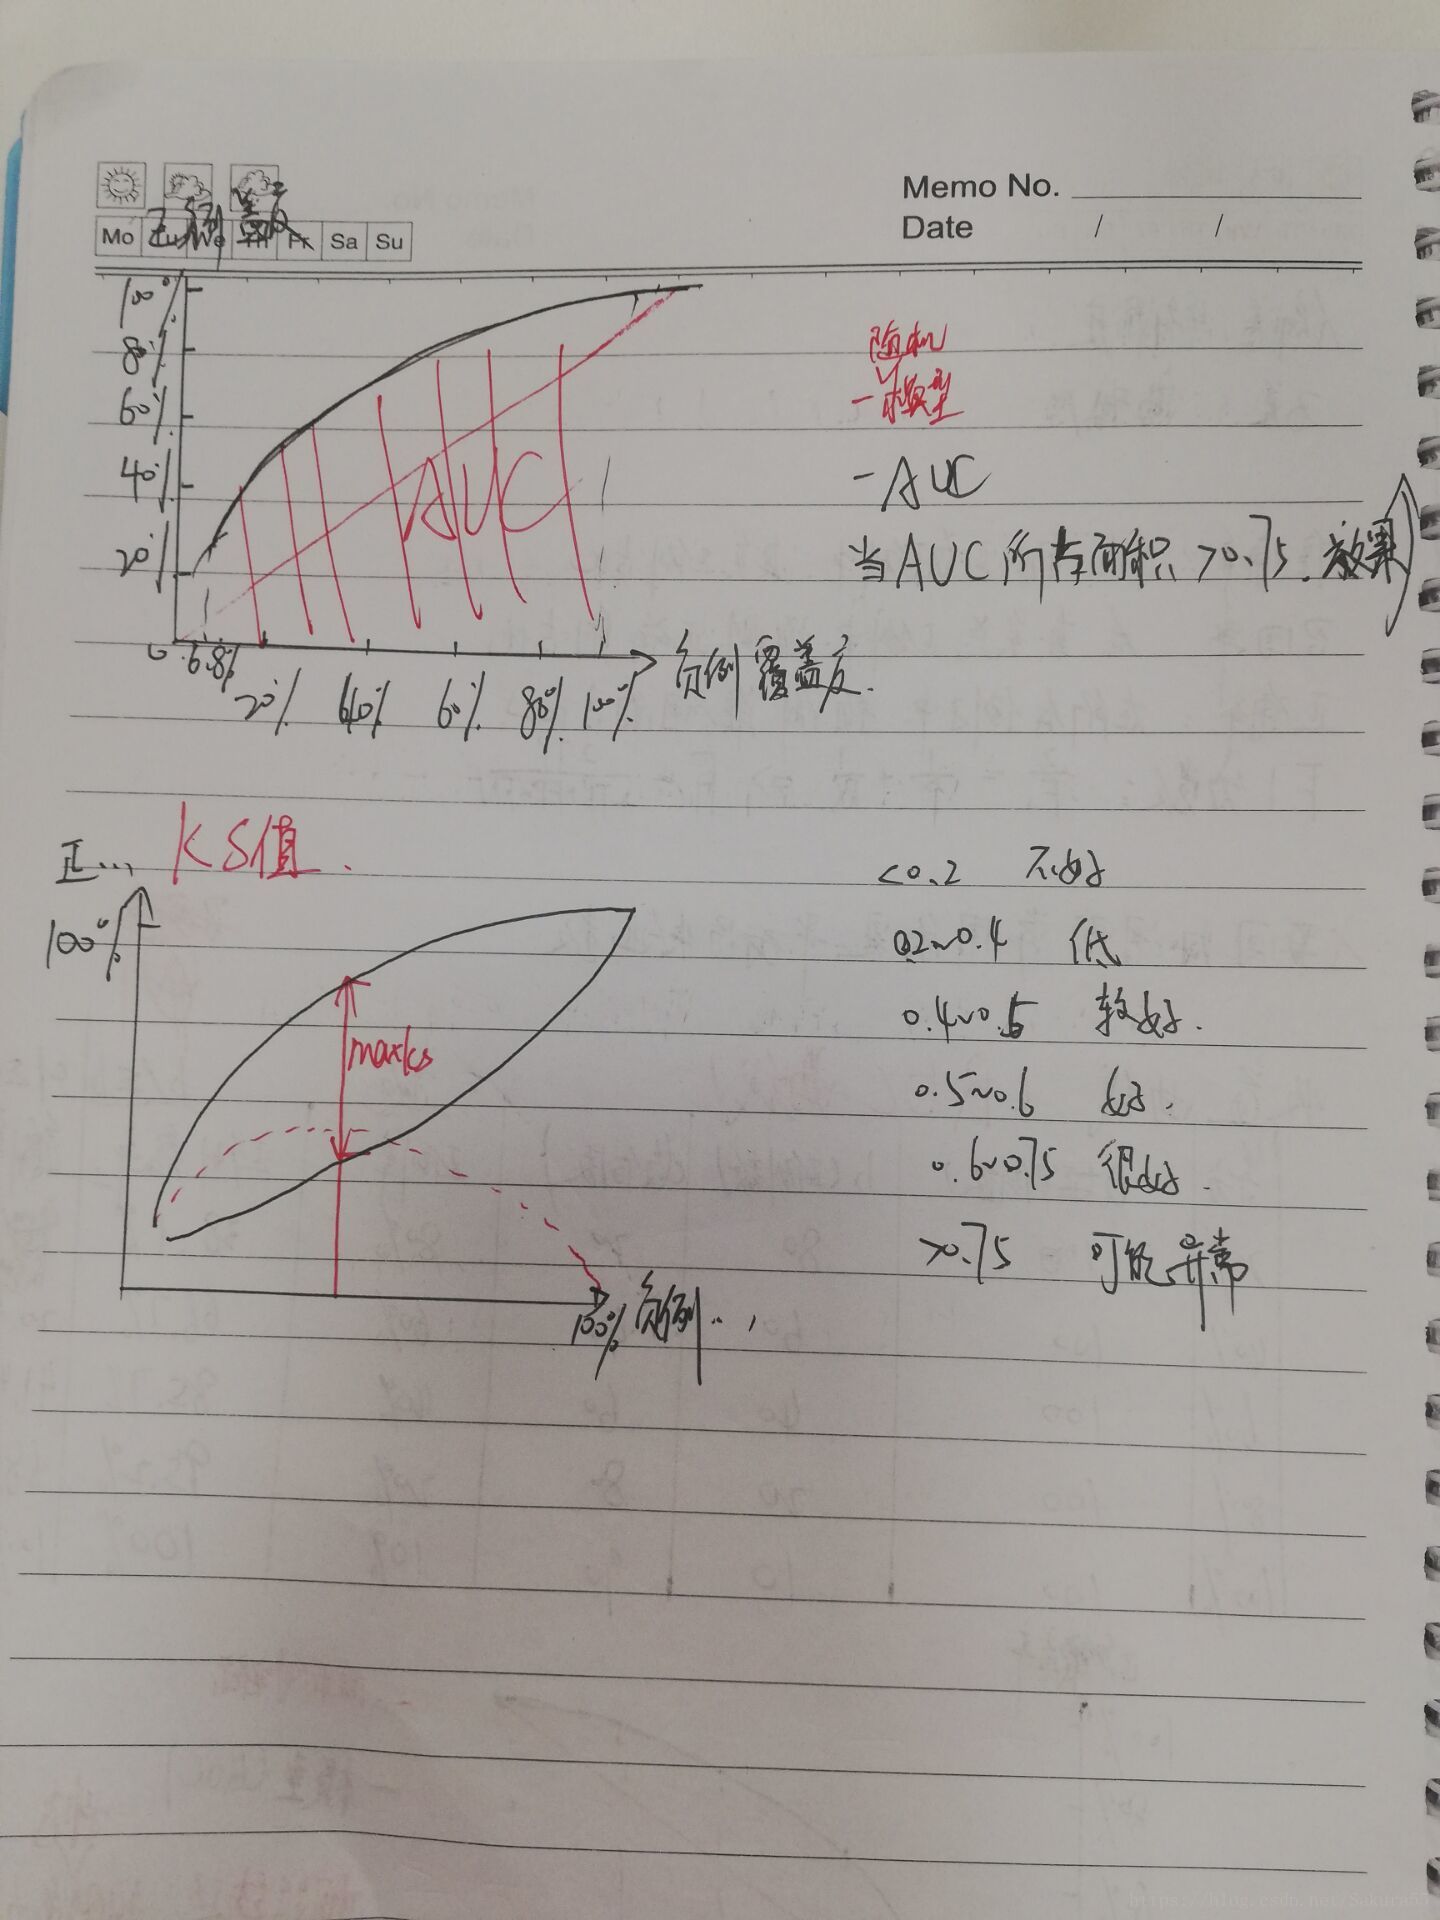 Memo No.
Date / /
Mo Tu We Th Fr Sa Su
正例覆盖度
100%
80%
60%
40%
20%
0
6.8%
20% 40% 60% 80% 100%
负例覆盖度.
AUC
随机
-模型
-AUC
当AUC所占面积>0.75.效果
正... KS值.
100%
maxks
100% 负例...
<0.2 不好
0.2~0.4 低
0.4~0.5 较好.
0.5~0.6 好.
0.6~0.75 很好.
>0.75 可能异常